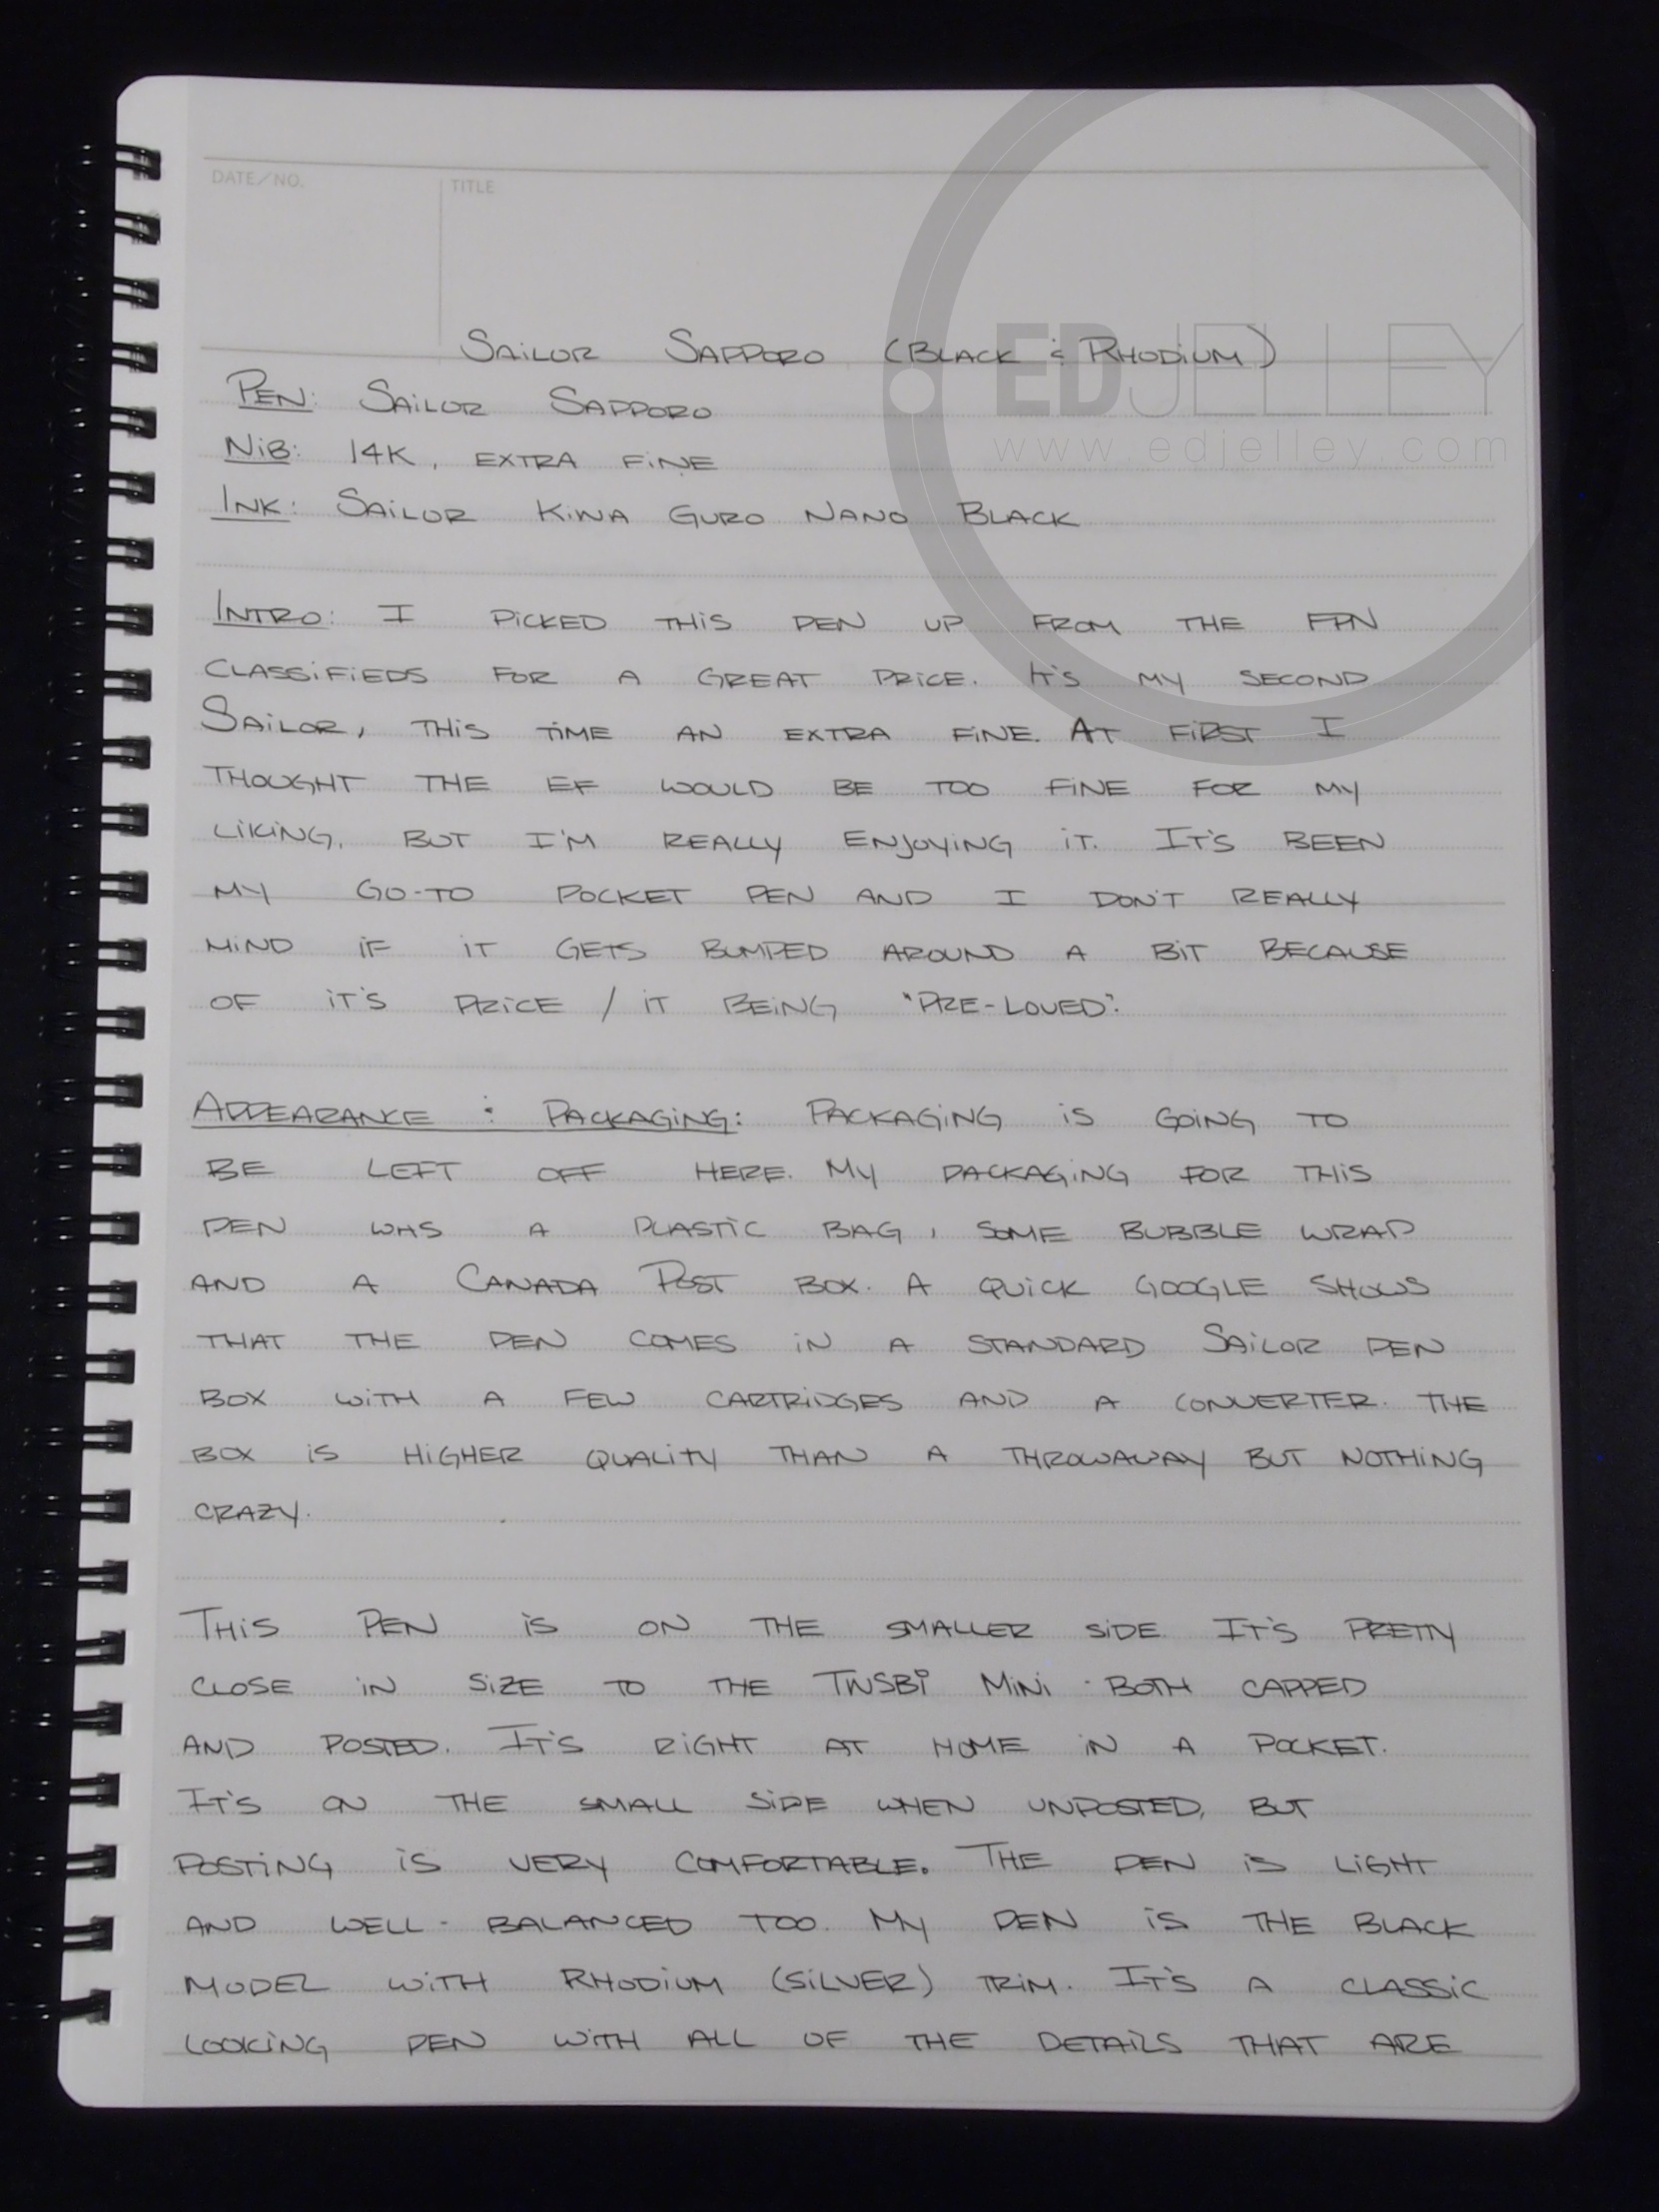 DATE/NO.
TITLE
EDJELLEY
www.edjelley.com
SAiLOR SAPPORO (BLACK & RHODiUM)
PEN: SAiLOR SAPPORO
NiB: 14K, EXTRA FiNE
INK: SAiLOR KiWA GURO NANO BLACK
INTRO: I PiCKED THiS PEN UP FROM THE FPN
CLASSiFiEDS FOR A GREAT PRiCE. IT'S MY SECOND
SAiLOR, THiS TiME AN EXTRA FiNE. AT FiRST I
THOUGHT THE EF WOULD BE TOO FiNE FOR MY
LiKiNG, BUT I'M REALLY ENJOYiNG iT. IT'S BEEN
MY GO-TO POCKET PEN AND I DON'T REALLY
MiND iF iT GETS BUMPED AROUND A BiT BECAUSE
OF iT'S PRiCE / iT BEiNG "PRE-LOVED".
APPEARANCE & PACKAGiNG: PACKAGiNG iS GOiNG TO
BE LEFT OFF HERE. MY PACKAGiNG FOR THiS
PEN WAS A PLASTiC BAG, SOME BUBBLE WRAP
AND A CANADA POST BOX. A QUiCK GOOGLE SHOWS
THAT THE PEN COMES iN A STANDARD SAiLOR PEN
BOX WiTH A FEW CARTRiDGES AND A CONVERTER. THE
BOX iS HiGHER QUALiTY THAN A THROWAWAY BUT NOTHiNG
CRAZY.
THiS PEN iS ON THE SMALLER SiDE. IT'S PRETTY
CLOSE iN SiZE TO THE TWSBi MiNi - BOTH CAPPED
AND POSTED. IT'S RiGHT AT HOME iN A POCKET.
IT'S ON THE SMALL SiDE WHEN UNPOSTED, BUT
POSTiNG iS VERY COMFORTABLE. THE PEN iS LiGHT
AND WELL-BALANCED TOO. MY PEN iS THE BLACK
MODEL WiTH RHODiUM (SiLVER) TRiM. IT'S A CLASSiC
LOOKiNG PEN WiTH ALL OF THE DETAiLS THAT ARE